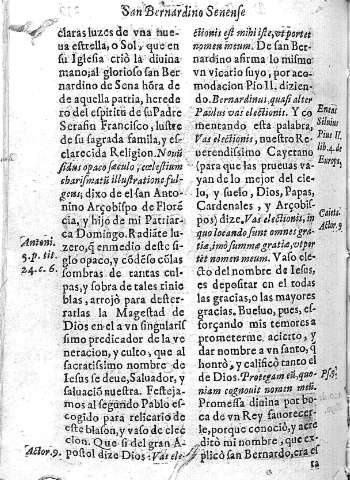 San Bernardino Senense
claras luzes de vna nue-
ua estrella, o Sol, que en
su Iglesia criò la diuina
mano; al glorioso san Ber
nardino de Sena hõra de
de aquella patria, herede
ro del espiritu de su Padre
Serafin Francisco, lustre
de su sagrada famila, y es-
clarecida Religion. Noui
sidus opaco sæculo, cœlestium
charismatũ illustratione ful-
gens; dixo de el san Anto-
nino Arçobispo de Florẽ
cia, y hijo de mi Patriar-
ca Domingo. Radiãte lu-
zero, q̃ enmedio deste si-
glo opaco, y cõdẽso cõ las
sombras de tantas cul-
pas, y sobra de tales tinie
blas, arrojò para dester-
rarlas la Magestad de
Dios en el a vn singularis
simo predicador de la ve
neracion, y culto, que al
sacratissimo nombre de
Iesus se deue, Saluador, y
saluaciõ nuestra. Festeja-
mos al segundo Pablo es-
cogido para relicario de
este blason, y vaso de elec
cion. Que si del gran A-
postol dize Dios: Vas ele-
Antoni.
3. p. tit.
24. c. 6.
Actor. 9.
ctionis est mihi iste, vt portet
nomen meum. De san Ber-
nardino afirma lo mismo
vn vicario suyo, por aco-
modacion Pio II. dizien-
do. Bernardinus, quasi alter
Paulus vas electionis. Y co
mentando esta palabra,
Vas electionis, nuestro Re
uerendissimo Cayetano
(para que las prueuas va-
yan de lo mejor del cie-
lo, y suelo, Dios, Papas,
Cardenales, y Arçobis-
pos) dize, Vas electionis, in
quo locando sunt omnes gra-
tiæ, imò summa gratiæ, vt por
tet nomen meum. Vaso ele-
cto del nombre de Iesus,
es depositar en el todas
las gracias, o las mayores
gracias. Bueluo, pues, es-
forçando mis temores a
prometerme acierto, y
dar nombre a vn santo, q̃
honrò, y calificò tanto el
de Dios. Protegam eũ, quo-
niam cognouit nomen meũ.
Promessa diuina por bo-
ca de vn Rey fauorecer-
le, porque conociò, y acre
ditò mi nombre, que ex-
plicò san Bernardo, era el
Eneas
Siluius
Pius II.
lib. 4. de
Europa,
Caieta.
Actor. 9
Ps. 9.